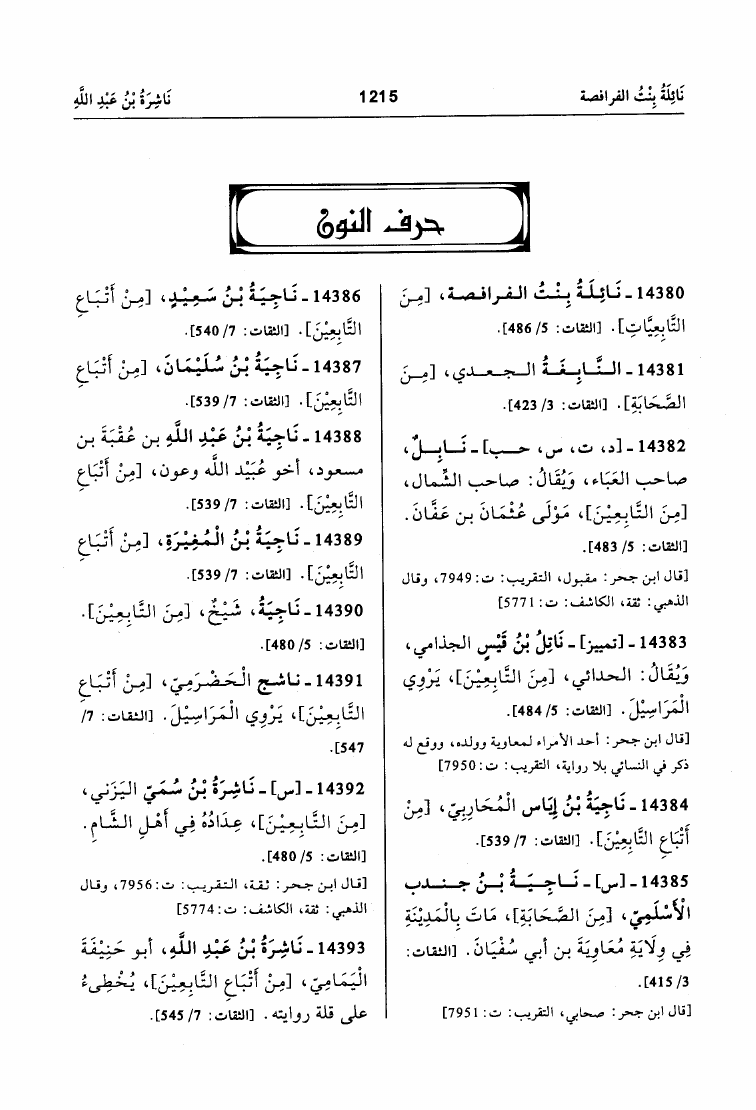 نَائِلَةُ بِنْتُ الفرافصة 1215 نَاشِرَةُ بْنُ عَبْدِ اللَّهِ
حرف النون
14380 ـ نَـائِـلَةُ بِـنْـتُ الـفـرافـصـة، [مِـنَ
التَّابِعِيَّاتِ]. [الثقات: 5/ 486].
14381 ـ الـنَّـابِـغَـةُ الـجـعـدي، [مِـنَ
الصَّحَابَةِ]. [الثقات: 3/ 423].
14382 ـ [د، ت، س، حـب] ـ نَـابِـلٌ،
صاحب العَبَاء، وَيُقَالُ: صاحب الشِّمال،
[مِنَ التَّابِعِيْنَ]، مَوْلَى عُثْمَانَ بن عَفَّانَ.
[الثقات: 5/ 483].
[قال ابن حجر: مقبول، التقريب: ت: 7949، وقال
الذهبي: ثقة، الكاشف: ت: 5771]
14383 ـ [تمييز] ـ نَاتِلُ بْنُ قَيْسٍ الجذامي،
وَيُقَالُ: الحدائي، [مِنَ التَّابِعِيْنَ]، يَرْوِي
المَرَاسِيْلَ. [الثقات: 5/ 484].
[قال ابن حجر: أحد الأمراء لمعاوية وولده، ووقع له
ذكر في النسائي بلا رواية، التقريب: ت: 7950]
14384 ـ نَاجِيَةُ بْنُ إِيَاس الْمُحَارِبِيّ، [مِنْ
أَتْبَاعِ التَّابِعِيْنَ]. [الثقات: 7/ 539].
14385 ـ [س] ـ نَـاجِـيَـةُ بْـنُ جـنـدب
الْأَسْلَمِيّ، [مِنَ الصَّحَابَةِ]، مَاتَ بِالْمَدِيْنَةِ
فِي وِلَايَةِ مُعَاوِيَةَ بن أبي سُفْيَانَ. [الثقات:
3/ 415].
[قال ابن حجر: صحابي، التقريب: ت: 7951]
14386 ـ نَـاجِيَـةُ بْـنُ سَـعِيْـدٍ، [مِـنْ أَتْبَـاعِ
التَّابِعِيْنَ]. [الثقات: 7/ 540].
14387 ـ نَاجِيَةُ بْنُ سُلَيْمَانَ، [مِنْ أَتْبَاعِ
التَّابِعِيْنَ]. [الثقات: 7/ 539].
14388 ـ نَاجِيَةُ بْنُ عَبْدِ اللَّهِ بن عُقْبَةَ بن
مسعود، أخو عُبَيْد الله وعون، [مِنْ أَتْبَاعِ
التَّابِعِيْنَ]. [الثقات: 7/ 539].
14389 ـ نَاجِيَةُ بْنُ الْمُغِيْرَةِ، [مِنْ أَتْبَاعِ
التَّابِعِيْنَ]. [الثقات: 7/ 539].
14390 ـ نَاجِيَةُ، شَيْخٌ، [مِنَ التَّابِعِيْنَ].
[الثقات: 5/ 480].
14391 ـ ناشج الْحَضْرَمِيّ، [مِنْ أَتْبَاعِ
التَّابِعِيْنَ]، يَرْوِي الْمَرَاسِيْلَ. [الثقات: 7/
547].
14392 ـ [س] ـ نَاشِرَةُ بْنُ سُمَيّ اليَزَنِي،
[مِنَ التَّابِعِيْنَ]، عِدَادُهُ فِي أَهْلِ الشَّامِ.
[الثقات: 5/ 480].
[قال ابن حجر: ثقة، التقريب: ت: 7956، وقال
الذهبي: ثقة، الكاشف: ت: 5774]
14393 ـ نَاشِرَةُ بْنُ عَبْدِ اللَّهِ، أبو حَنِيْفَةَ
الْيَمَامِيّ، [مِنْ أَتْبَاعِ التَّابِعِيْنَ]، يُخْطِىءُ
على قلة روايته. [الثقات: 7/ 545].